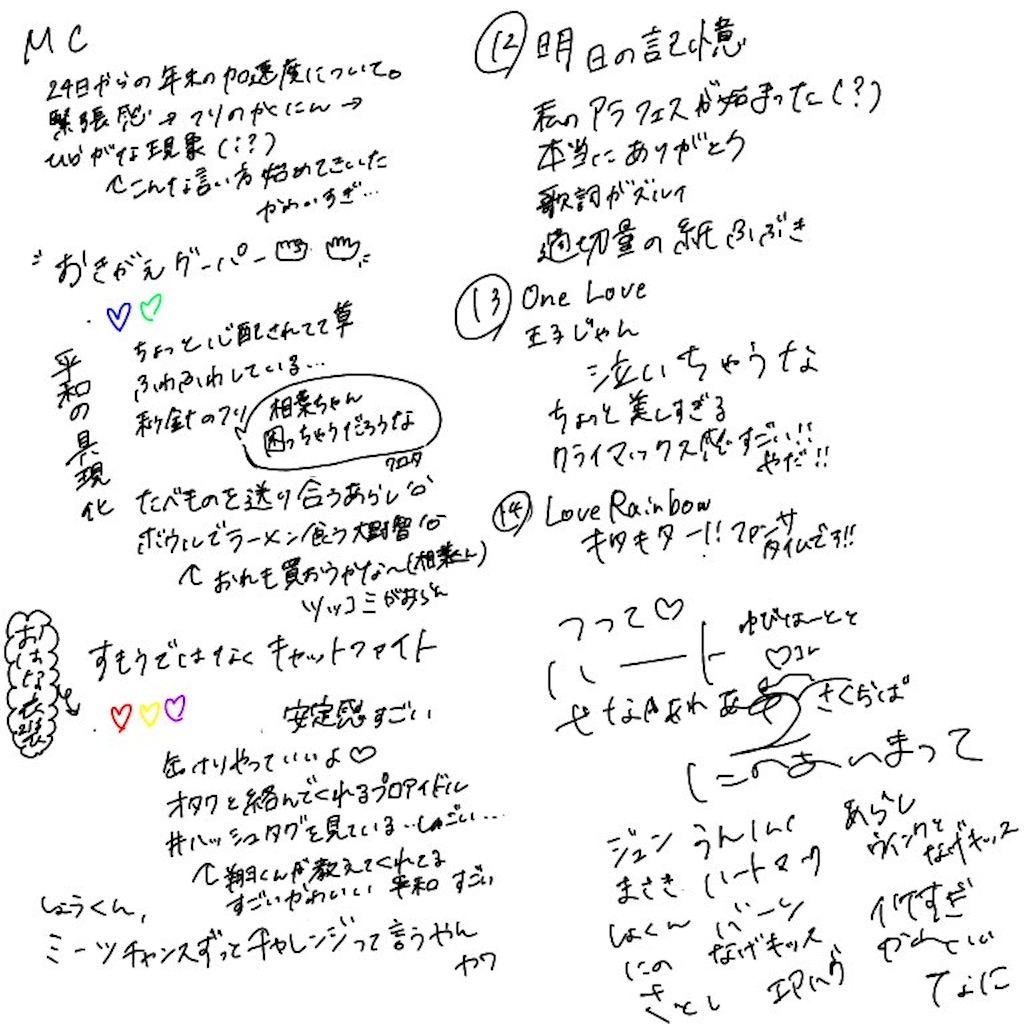 MC
24日からの年末の加速度について。
緊張感→フリのかくにん→
ひらがな現象(!?)
↑こんな言い方始めてきいた
かわいすぎ…
おきがえグーパー
ちょっと心配されてて草
ふわふわしている…
秒針のフリ
相葉ちゃん
困っちゃうだろうな
平和の具現化
たべものを送り合うあらし
ボウルでラーメン食う大野智
↑おれも買おうかな〜(相葉くん)
ツッコミがあらん
すもうではなくキャットファイト
おはな衣装
安定感すごい
缶けりやっていいよ♡
オタクと絡んでくれるプロアイドル
#ハッシュタグを見ている…しゅごい…
↑翔くんが教えてくれてる
すごいかわいい 平和 すごい
しょうくん,
ミーツチャンスずっとチャレンジって言うやん
カワ
⑫ 明日の記憶
私のアラフェスが始まった(?)
本当にありがとう
歌詞がズルイ
適切量の紙ふぶき
⑬ One Love
王子じゃん
泣いちゃうな
ちょっと美しすぎる
クライマックス感すごい!!
やだ!!
⑭ Love Rainbow
キタキター!! ファンサ
タイムです!!
つって♡
ハート
ゆびはーとと
さくらいば
にのあいまって
ジュン うんしん
まさき ハートマーク
しょくん バーン
にの なげキッス
さとし
あらし
ウインクと
なげキッス
イケすぎ
てなに